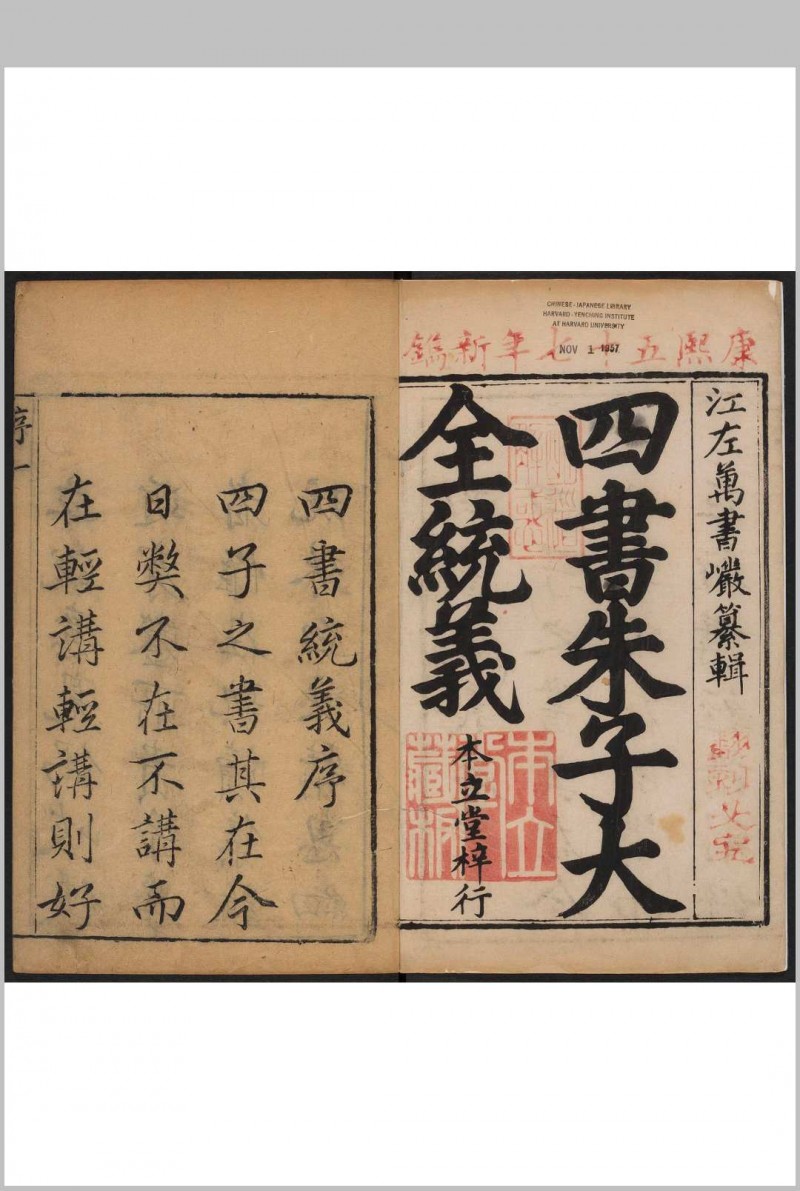 CHINESE-JAPANESE LIBRARY
HARVARD-YENCHING INSTITUTE
AT HARVARD UNIVERSITY
NOV 1 1957
康熙五十七年新鐫
江左萬書巖纂輯
四書朱子大
全統義
本立堂梓行
本立
堂
藏板
四書統義序
四子之書其在今
日獘不在不講而
在輕講輕講則好
序 一